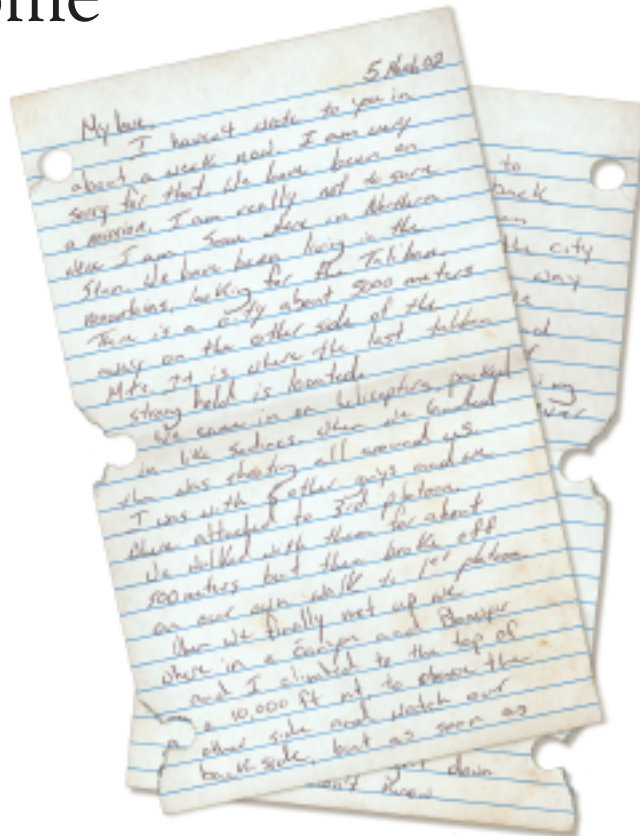 ome
5 March 02
My love
I haven't wrote to you in
about a week now. I am very
sorry for that. We have been on
a mission. I am really not to sure
where I am. Some where in Northern
Stan. We have been living in the
mountains, looking for the Taliban.
There is a city about 5000 meters
away on the other side of the
Mts. It is where the last taliban
strong hold is located.
We came in on helicopters, packed
in like sardines. When we landed
ther was shooting all around us.
I was with 5 other guys and we
where attached to 3rd platoon
We walked with them for about
500 meters but then broke off
on our own walk to 1st platoon
When we finally met up we
where in a canyon and
and I climbed to the top of
a 10,000 ft mt. to the
other side and watch our
back side, but as soon as
to
back
the city
way
down
don't know